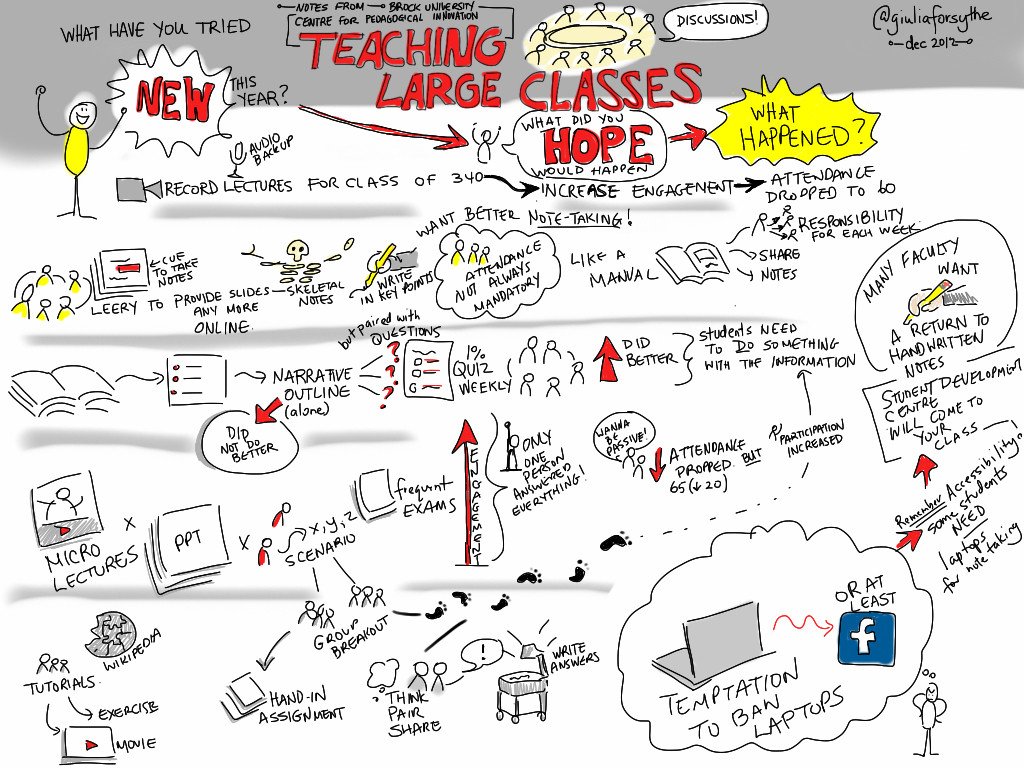 NOTES FROM BROCK UNIVERSITY
CENTRE FOR PEDAGOGICAL INNOVATION
TEACHING
LARGE CLASSES
DISCUSSIONS!
@giuliaforsythe
dec 2012
WHAT HAVE YOU TRIED
NEW
THIS
YEAR?
WHAT DID YOU
HOPE
WOULD HAPPEN
WHAT
HAPPENED?
AUDIO
BACKUP
RECORD LECTURES FOR CLASS OF 340
INCREASE ENGAGEMENT
ATTENDANCE
DROPPED TO 60
WANT BETTER NOTE-TAKING!
CUE
TO TAKE
NOTES
LEERY TO PROVIDE SLIDES
ANY MORE
ONLINE.
SKELETAL
NOTES
WRITE
IN KEY POINTS
ATTENDANCE
NOT ALWAYS
MANDATORY
LIKE A
MANUAL
RESPONSIBILITY
FOR EACH WEEK
SHARE
NOTES
MANY FACULTY
WANT
A RETURN TO
HANDWRITTEN
NOTES
NARRATIVE
OUTLINE
(alone)
DID
NOT DO
BETTER
but paired with
QUESTIONS
?
?
?
?
1%
QUIZ
WEEKLY
DID
BETTER
students NEED
TO DO SOMETHING
WITH THE INFORMATION
STUDENT DEVELOPMENT
CENTRE
WILL COME TO
YOUR
CLASS
MICRO
LECTURES
X
PPT
X
x, y, z
SCENARIO
frequent
EXAMS
ENGAGEMENT
ONLY
ONE
PERSON
ANSWERED
EVERYTHING!
WANNA
BE
PASSIVE!
ATTENDANCE
DROPPED. BUT
65 (↓20)
PARTICIPATION
INCREASED
Remember Accessibility!
some students
NEED
laptops
for note taking
WIKIPEDIA
TUTORIALS.
EXERCISE
MOVIE
GROUP
BREAKOUT
HAND-IN
ASSIGNMENT
THINK
PAIR
SHARE
!
WRITE
ANSWERS
OR AT
LEAST
f
TEMPTATION
TO BAN
LAPTOPS